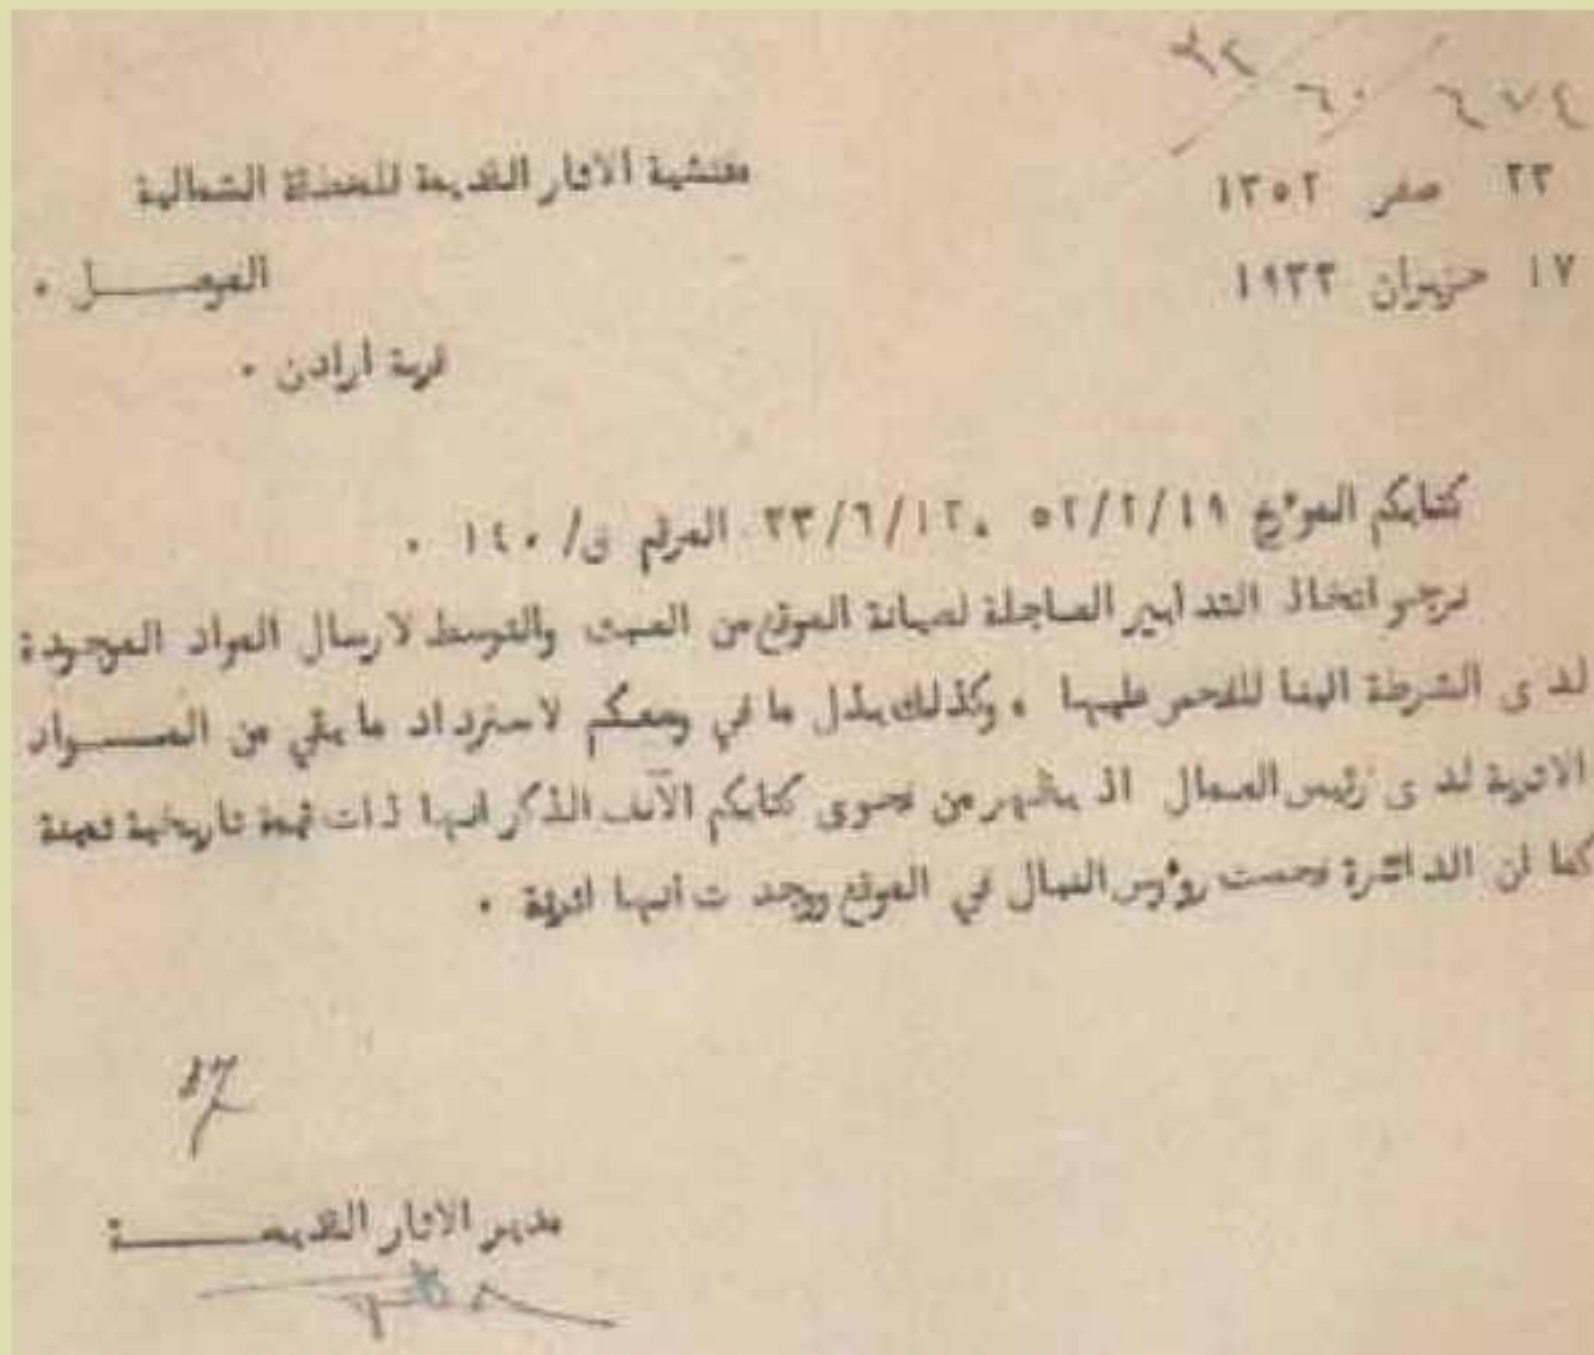 ٦٧٤ / ٦٠ / ٣٢
٢٣ صفر ١٣٥٢
١٧ حزيران ١٩٣٣
مفتشية الاثار القديمة للمنطقة الشمالية
الموصـــل ٠
قرية ارادن ٠
كتابكم المؤرخ ٥٢/٢/١٩ ، ٣٣/٦/١٢ المرقم ق/ ١٤٠ ٠
نرجو اتخاذ التدابير العاجلة لصيانة الموقع من العبث والتوسط لارسال المواد الموجودة
لدى الشرطة الينا للفحص عليها ٠ وكذلك بذل ما في وسعكم لاسترداد ما بقي من المـــواد
الاثرية لدى رئيس العمال اذ يظهر من فحوى كتابكم الآنف الذكر انها ذات قيمة تاريخية ثمينة
كما ان الدائرة فحصت رؤوس النبال في الموقع ووجدت أنها اثرية ٠
مدير الاثار القديمـــة